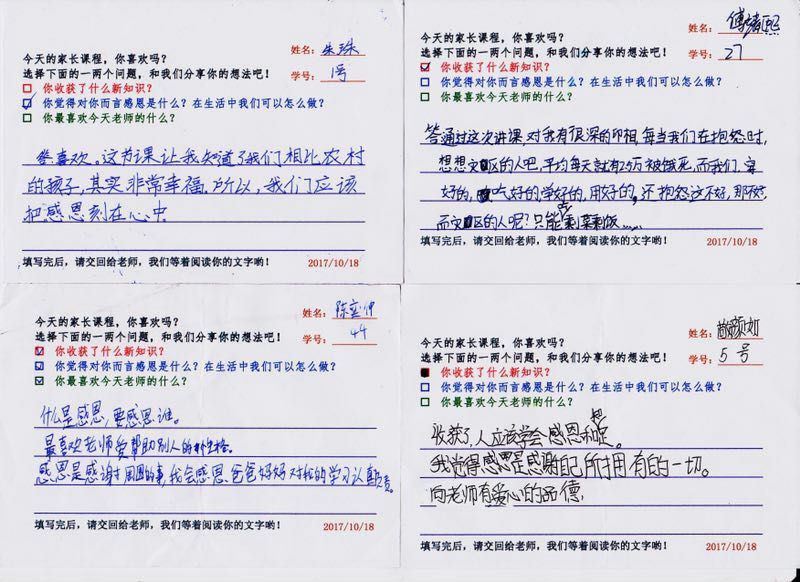 今天的家长课程，你喜欢吗？
姓名：朱珠
选择下面的一两个问题，和我们分享你的想法吧！
学号：1号
你收获了什么新知识？
你觉得对你而言感恩是什么？在生活中我们可以怎么做？
你最喜欢今天老师的什么？
喜欢。这节课让我知道了我们相比农村
的孩子，其实非常幸福，所以，我们应该
把感恩刻在心中
填写完后，请交回给老师，我们等着阅读你的文字哟！
2017/10/18
姓名：傅 熙
今天的家长课程，你喜欢吗？
选择下面的一两个问题，和我们分享你的想法吧！
学号：27
你收获了什么新知识？
你觉得对你而言感恩是什么？在生活中我们可以怎么做？
你最喜欢今天老师的什么？
答通过这次讲课，对我有很深的印相，每当我们在抱怨时，
想想灾区的人吧，平均每天就有2.5万被饿死，而我们，穿
好的，吃好的，学好的，用好的，还抱怨这不好，那
而灾区的人呢？只能吃剩菜剩饭……
填写完后，请交回给老师，我们等着阅读你的文字哟！
2017/10/18
今天的家长课程，你喜欢吗？
姓名：陈 伊
选择下面的一两个问题，和我们分享你的想法吧！
学号：44
你收获了什么新知识？
你觉得对你而言感恩是什么？在生活中我们可以怎么做？
你最喜欢今天老师的什么？
什么是感恩，要感恩谁。
最喜欢老师爱帮助别人的性格。
感恩是感谢对周围的事，我会感恩爸爸妈妈对我的学习认真负责。
填写完后，请交回给老师，我们等着阅读你的文字哟！
2017/10/18
今天的家长课程，你喜欢吗？
姓名：颜如
选择下面的一两个问题，和我们分享你的想法吧！
学号：5号
你收获了什么新知识？
你觉得对你而言感恩是什么？在生活中我们可以怎么做？
你最喜欢今天老师的什么？
收获了，人应该学会感恩和知足。
我觉得感恩是感谢自己所拥有的一切。
向老师有爱心的品德，
填写完后，请交回给老师，我们等着阅读你的文字哟！
2017/10/18